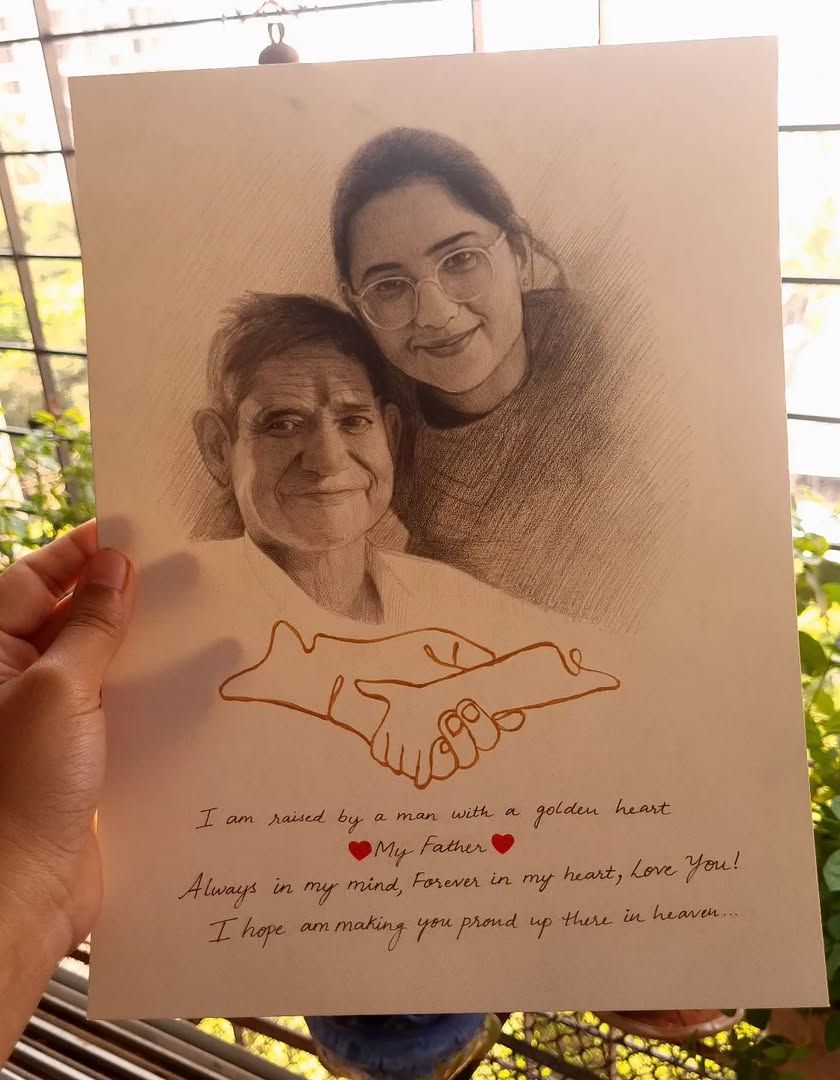 I am raised by a man with a golden heart
My Father
Always in my mind, Forever in my heart, Love You!
I hope am making you proud up there in heaven...